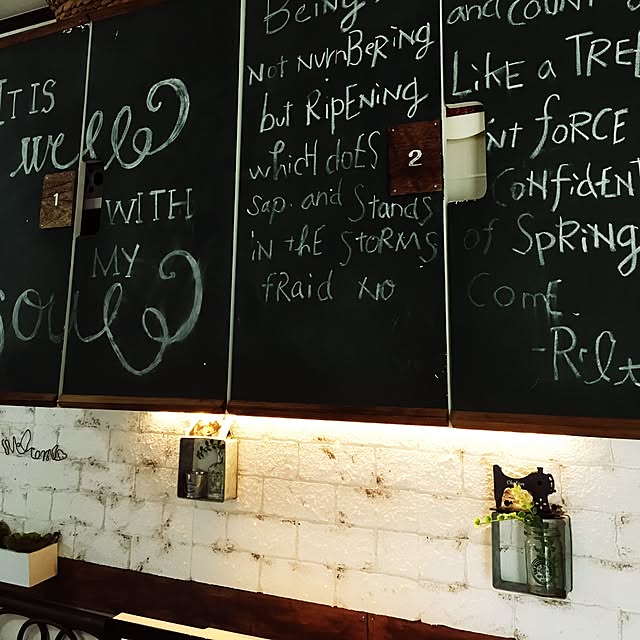 IT IS
well
WITH
MY
soul
1
Being
Not NumBERiNg
but RipENiNg
which doES
sap. and Stands
iN thE StoRMS
fRaid No
2
and couNt
LikE a TREE
Nt foRCE
CoNfidENt
of SpRiNg
ComE.